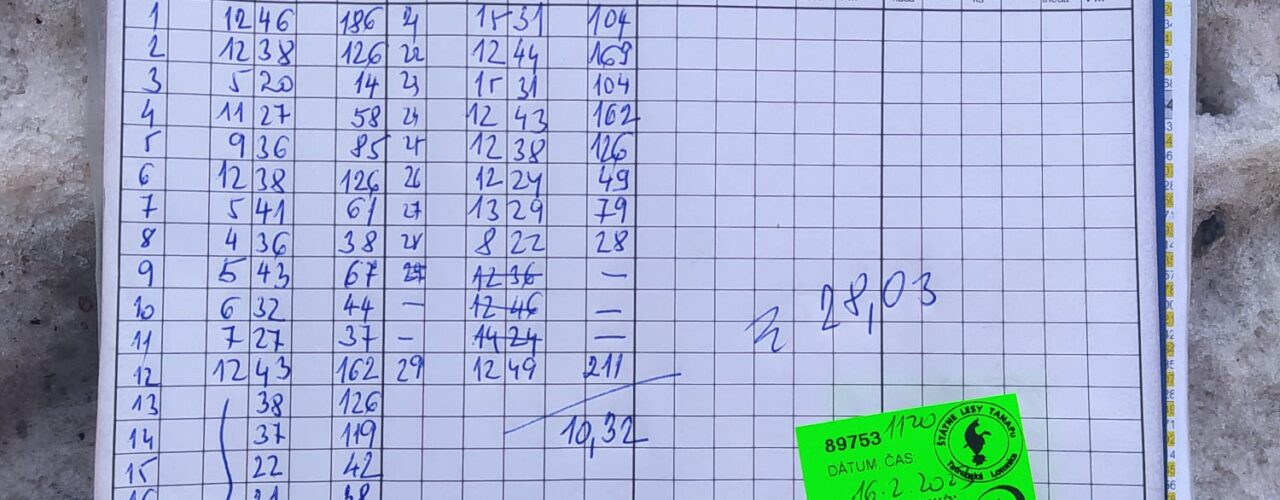 1 12 46 186 21 15 31 104
2 12 38 126 22 12 44 169
3 5 20 14 23 15 31 104
4 11 27 58 24 12 43 162
5 9 36 85 25 12 38 126
6 12 38 126 26 12 24 49
7 5 41 61 27 13 29 79
8 4 36 38 28 8 22 28
9 5 43 67 29 12 36 —
10 6 32 44 — 12 46 —
11 7 27 37 — 14 24 —
12 12 43 162 29 12 49 211
13 38 126
14 37 119 10,32
15 22 42
28,03
89753 1120
DÁTUM, ČAS:
16.2.202
ŠTÁTNE LESY TANAPU
Tatranská Lomnica